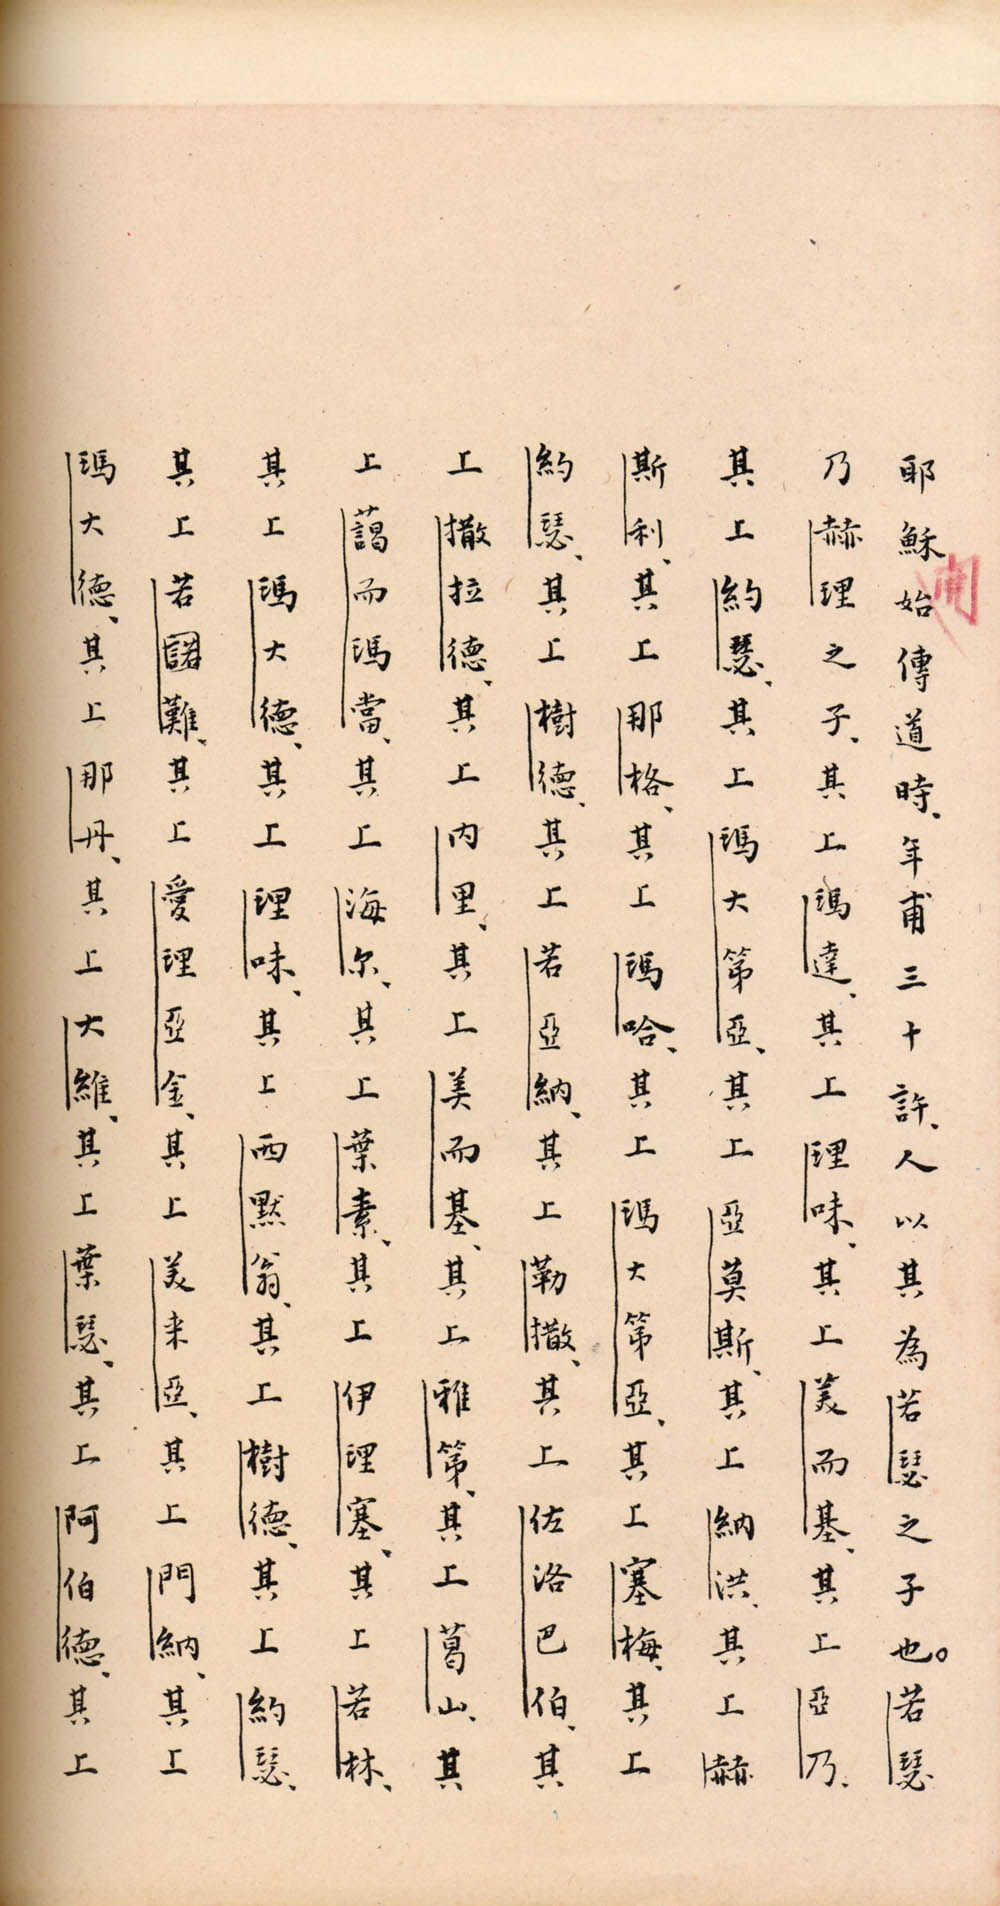 耶穌始傳道時、年甫三十許、人以其為若瑟之子也。若瑟
乃赫理之子、其上瑪達、其上理味、其上美而基、其上亞乃、
其上約瑟、其上瑪大第亞、其上亞莫斯、其上納洪、其上赫
斯利、其上那格、其上瑪哈、其上瑪大第亞、其上塞梅、其上
約瑟、其上樹德、其上若亞納、其上勒撒、其上佐洛巴伯、其
上撒拉德、其上內里、其上美而基、其上雅第、其上葛山、其
上藹而瑪當、其上海尔、其上葉素、其上伊理塞、其上若林、
其上瑪大德、其上理味、其上西默翁、其上樹德、其上約瑟、
其上若諾難、其上愛理亞金、其上美来亞、其上門納、其上
瑪大德、其上那丹、其上大維、其上葉瑟、其上阿伯德、其上